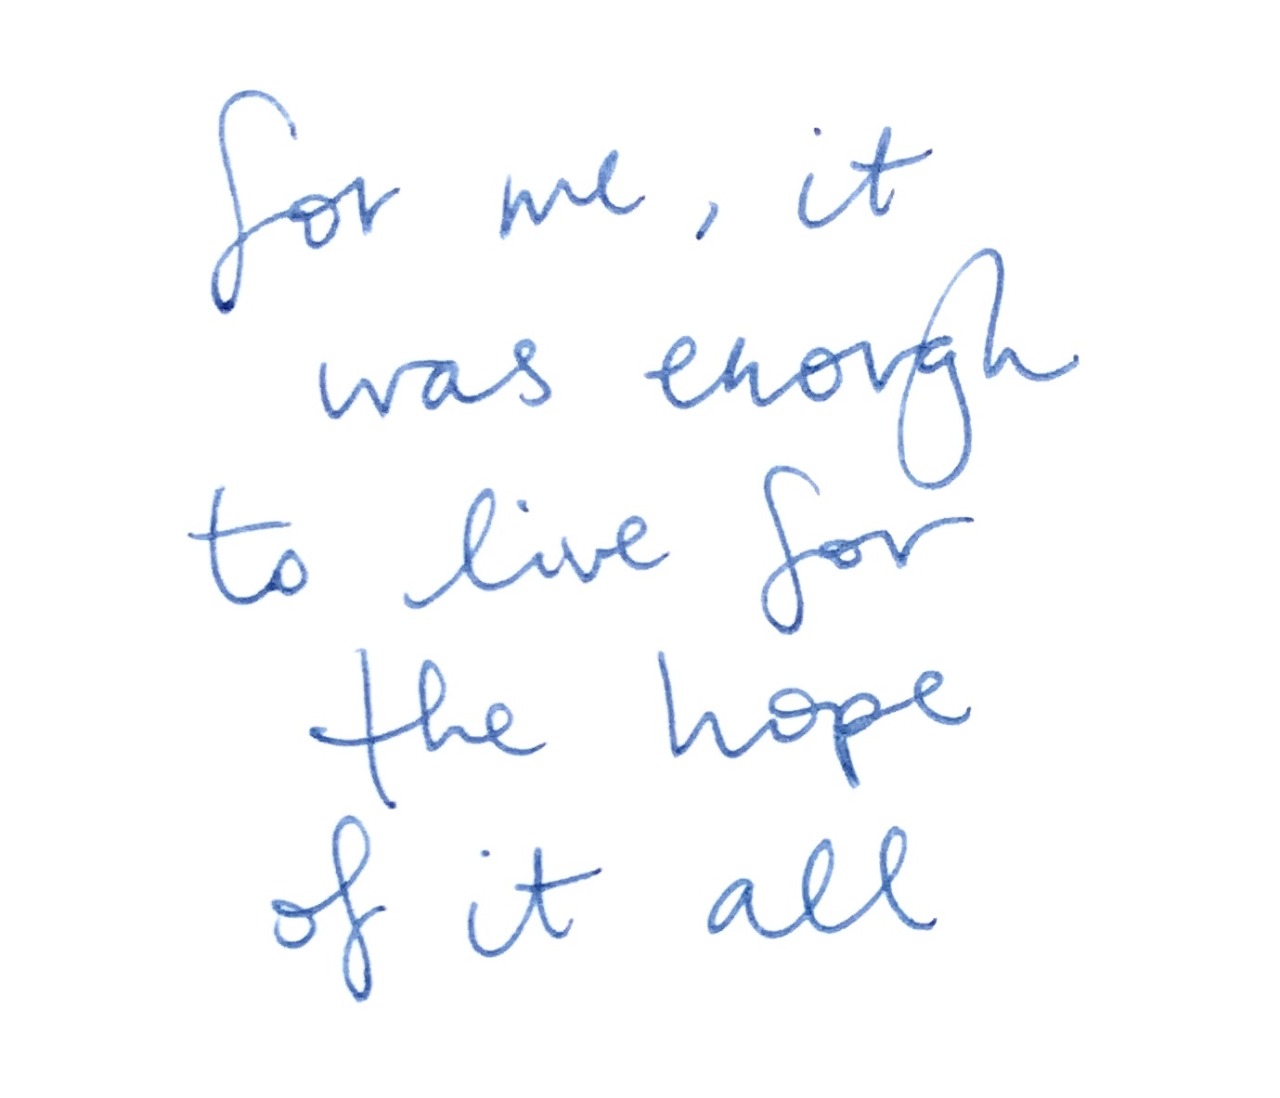 for me, it
was enough
to live for
the hope
of it all